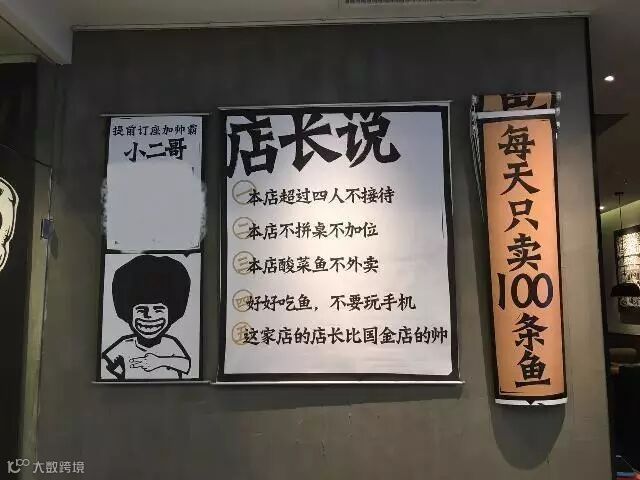 提前订座加帅霸
小二哥
店长说
一 本店超过四人不接待
二 本店不拼桌不加位
三 本店酸菜鱼不外卖
四 好好吃鱼，不要玩手机
五 这家店的店长比国金店的帅
每天只卖100条鱼
大数跨境